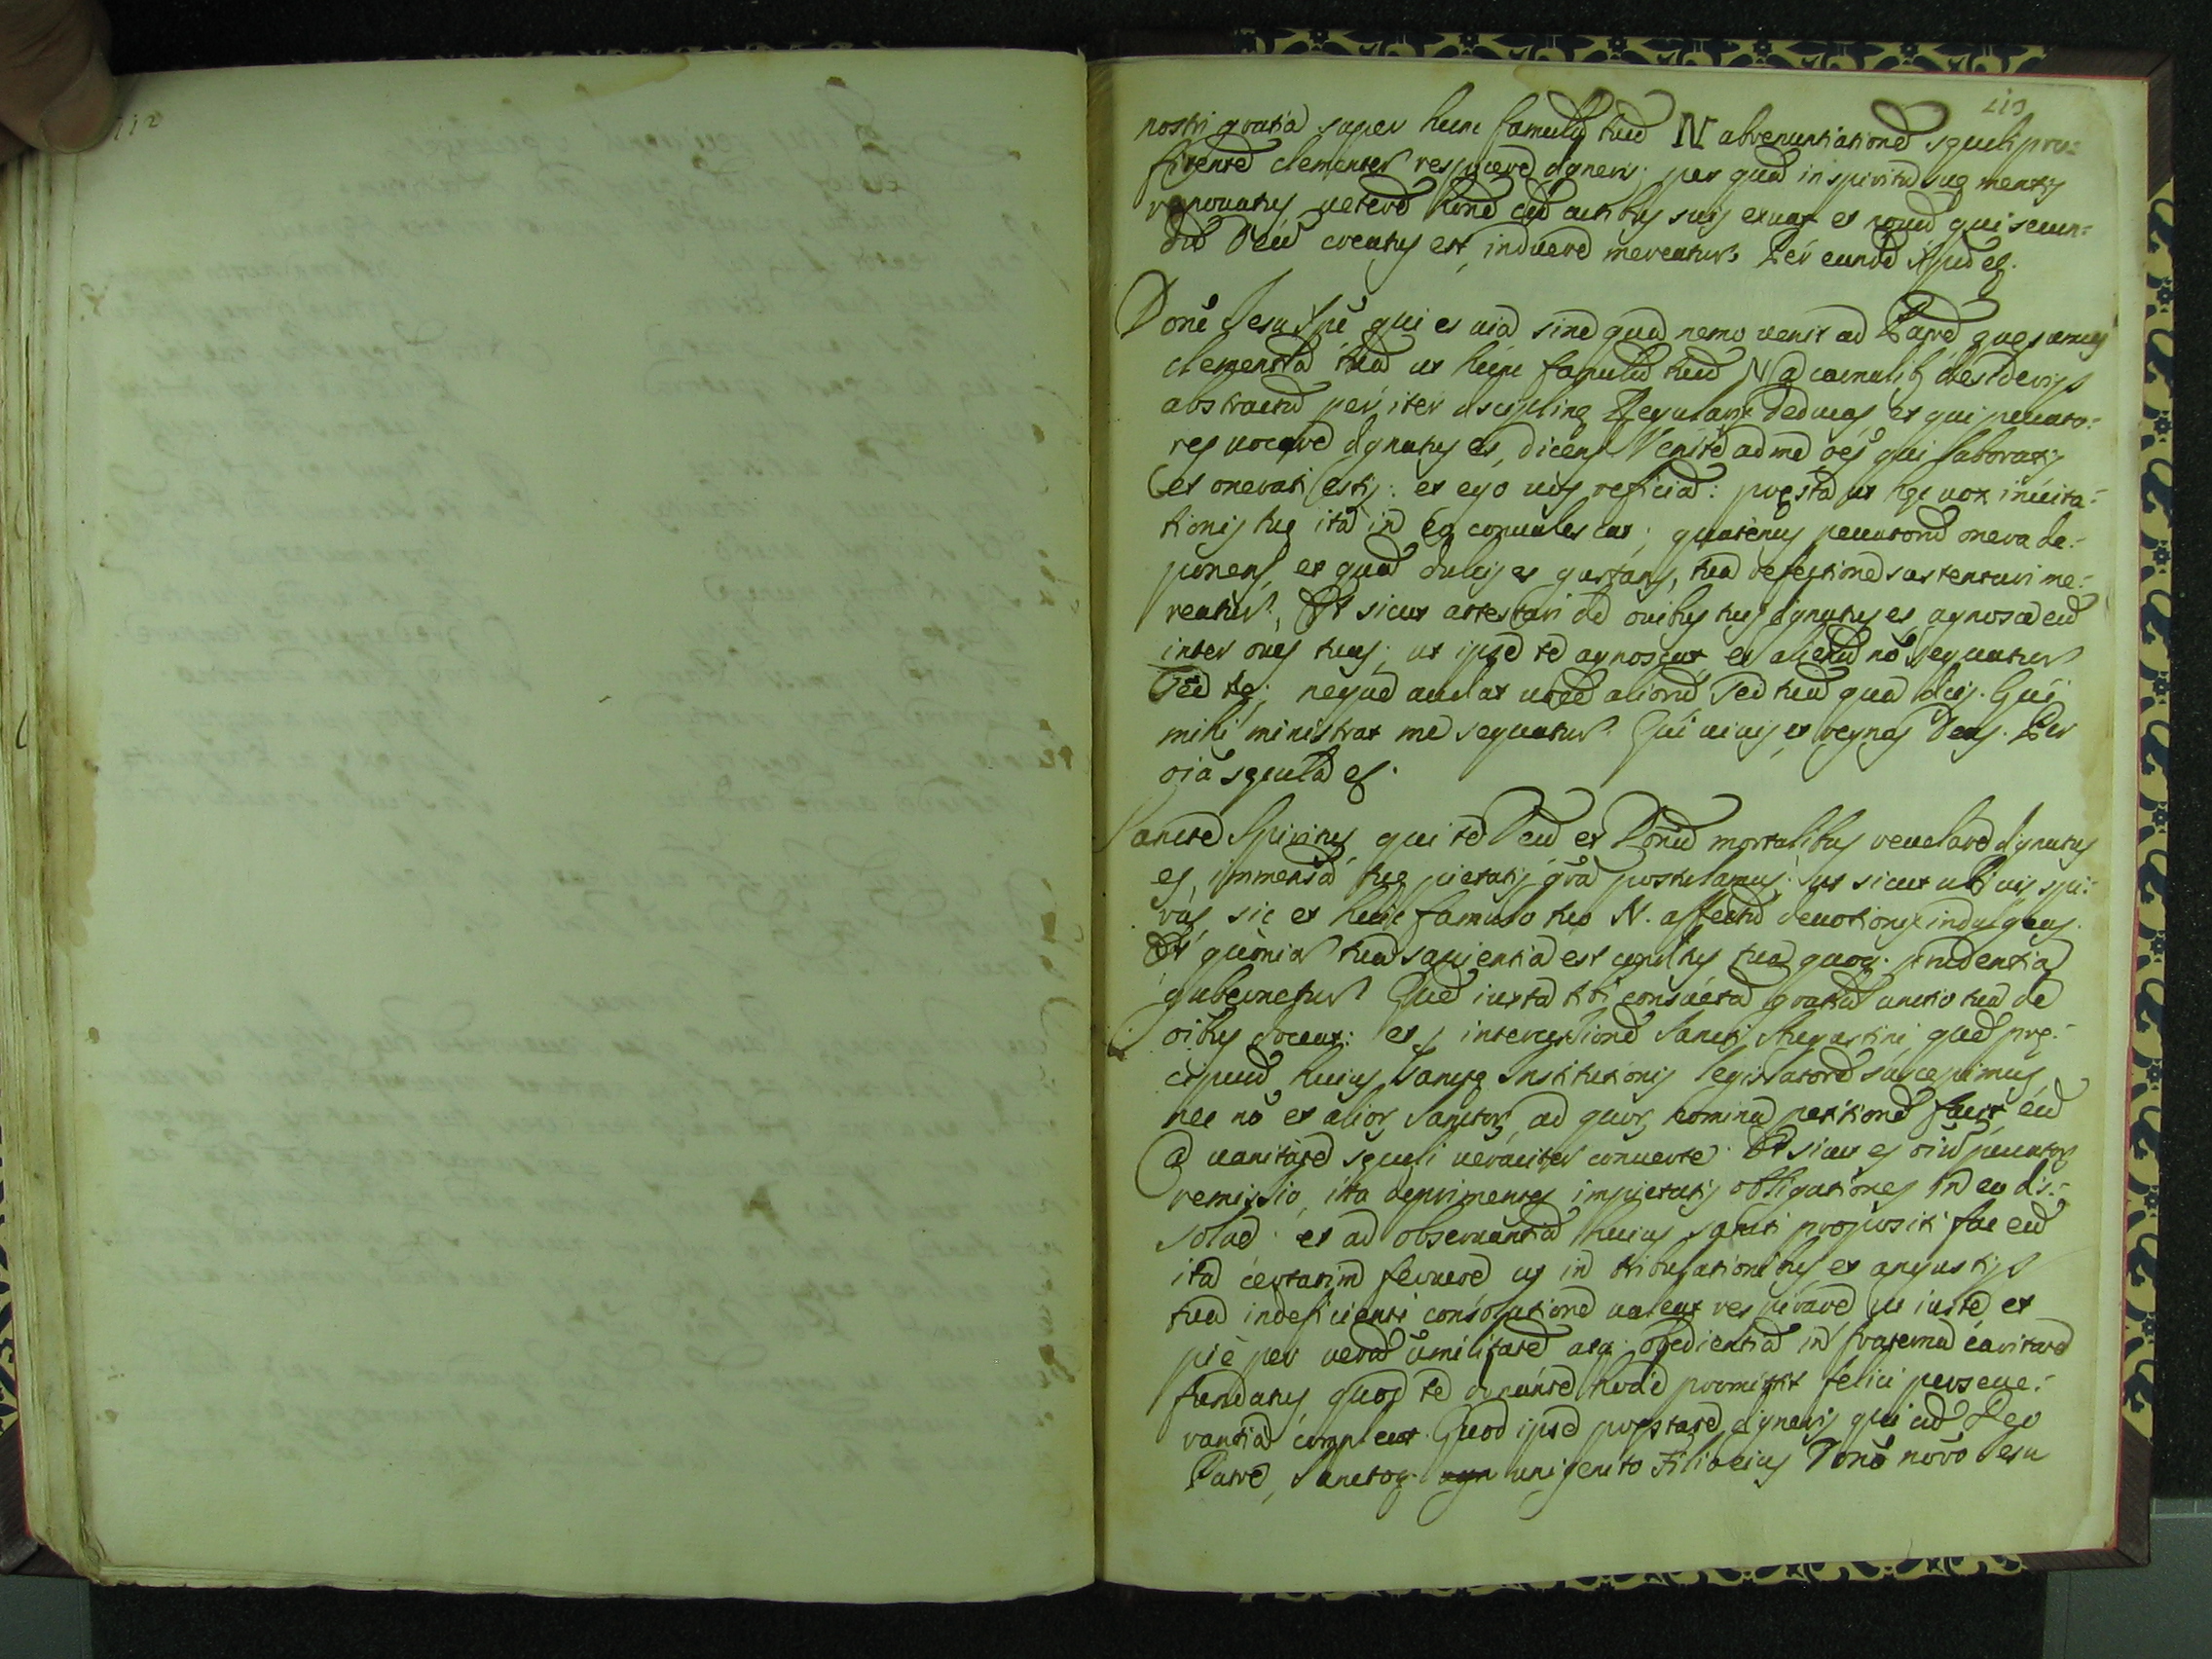 112
113
nostri gratiã super hunc famulũ tuũ N abrenuntiationẽ sęculi pro=
fitentẽ clementer respicere digneris; per quã in spiritu suę mentis
renouatus, ueterẽ hoiẽ cũ actibus suis exuat et nouũ qui secun=
dũ Deũ creatus est, induere mereatur. Per eundẽ Xpũ &c.
Donẽ Jesu Xpẽ qui es uia sine qua nemo uenit ad Patrẽ quęsumus
clementiã tuã ut hunc famulũ tuũ N a carnalibꝰ desiderijs
abstractũ per iter disciplinę Regularis deducas, et qui peccato=
res uocare dignatus es, dicens Venite ad me oẽs qui laboratis
et onerati estis: et ego uos reficiã: pręsta ut hęc uox inuita=
tionis tuę ita in eo conualescat; quatenus peccatorũ onera de=
ponens, et quã dulcis es gustans, tua refectione sustentari me=
reatur. Et sicut attestari de ouibus tuis dignatus es, agnosce eũ
inter oues tuas; ut ipse te agnoscat, et alienũ nõ sequatur
sed te; neque audiat uocẽ aliorũ, sed tuã qua dicis. Qui
mihi ministrat me sequatur. Qui uiuis, et regnas Deus. Per
oia sęcula &c.
Sancte Spiritus qui te Deũ et Donũ mortalibus reuelare dignatus
es, immensã tuę pietatis grã postulamus: ut sicut ubi uis spi=
ras, sic et huic famulo tuo N. affectũ deuotionis indulgeas.
Et quoniã tua sapientia est conditus, tua quoqꝫ prudentia
gubernetur. Quẽ iuxta tibi consueta gratiã unctio tua de
oibus doceat: et intercessione Sancti Augustini, quẽ prę=
cipuũ huius Sanctę Institutionis legislatorẽ suscepimus,
nec nõ et alior Sanctor, ad quor nomina petitionẽ facit, eũ
a uanitate sęculi ueraciter conuerte. Et sicut es oiũ peccator
remissio, ita deprimentes impietatis obligationes in eo dis=
solue: et ad obseruantiã huius sancti propositi fac eũ
ita certatim feruere ut in tribulationibus et angustijs
tua indeficienti consolatione ualeat respirare, ut iuste et
pie per uerã umilitatẽ atqꝫ obedientiã in fraterna caritate
fundatus, quod te donante hodie promittit felici perseue=
rantia compleat. Quod ipse pręstare digneris, qui cũ Deo
Patre, Sanctoqꝫ unigenito Filio eius Donõ nõro Jesu